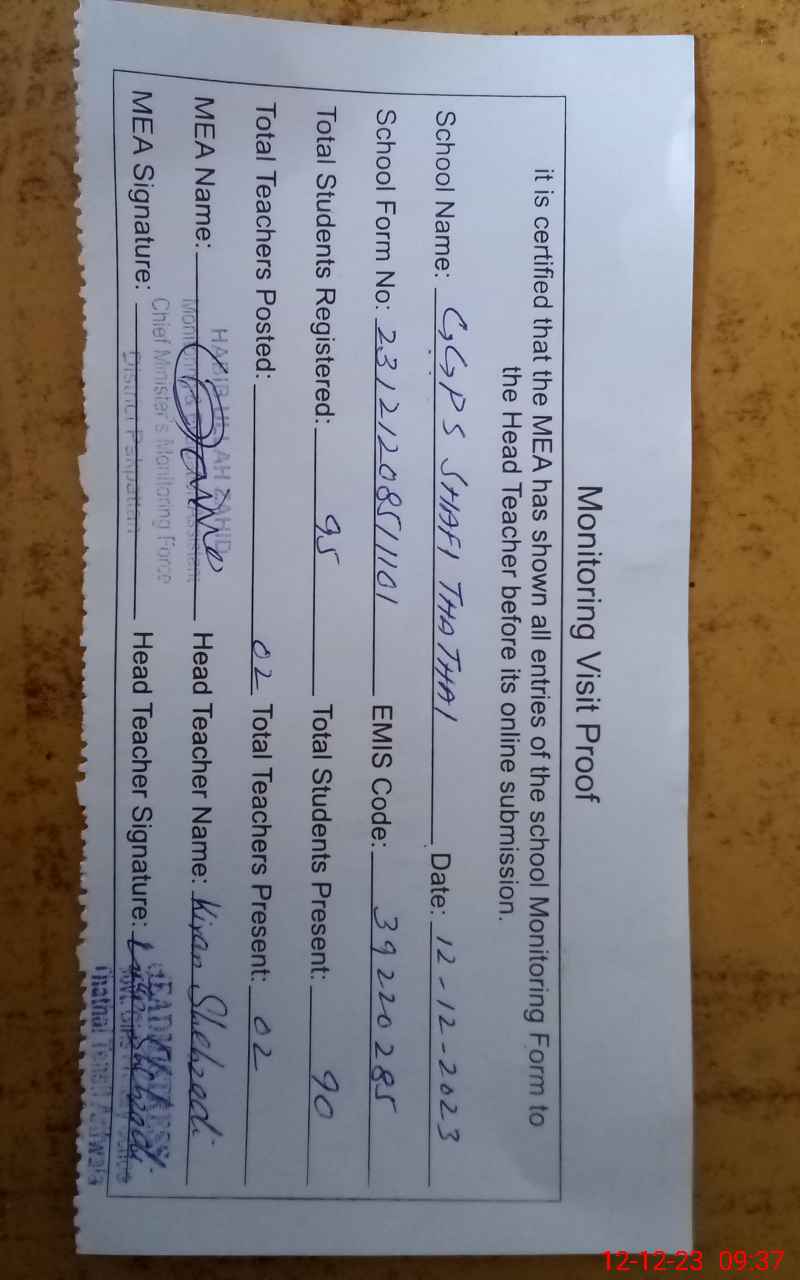 Monitoring Visit Proof
it is certified that the MEA has shown all entries of the school Monitoring Form to
the Head Teacher before its online submission.
School Name: GGPS SHAFI THATHAI Date: 12-12-2023
School Form No: 231212085/1101 EMIS Code: 39220285
Total Students Registered: 95 Total Students Present: 90
Total Teachers Posted: 02 Total Teachers Present: 02
MEA Name: Head Teacher Name: Kiran Shehzadi
MEA Signature: Head Teacher Signature:
HABIB ULLAH ZAHID
Monitoring & Assistant
Chief Minister's Monitoring Force
District Pakpattan
HEADMISTRESS
12-12-23 09:37